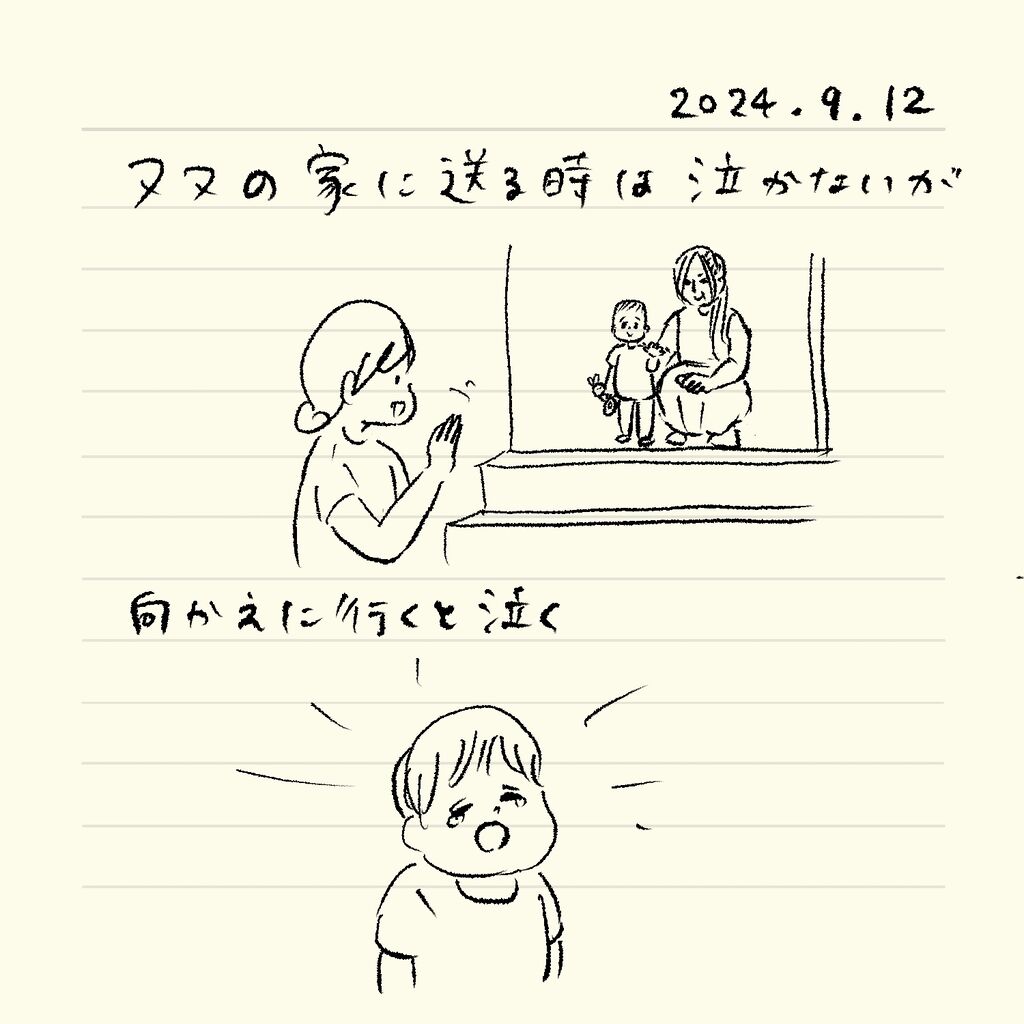 2024.9.12
ヌヌの家に送る時は泣かないが
向かえに行くと泣く